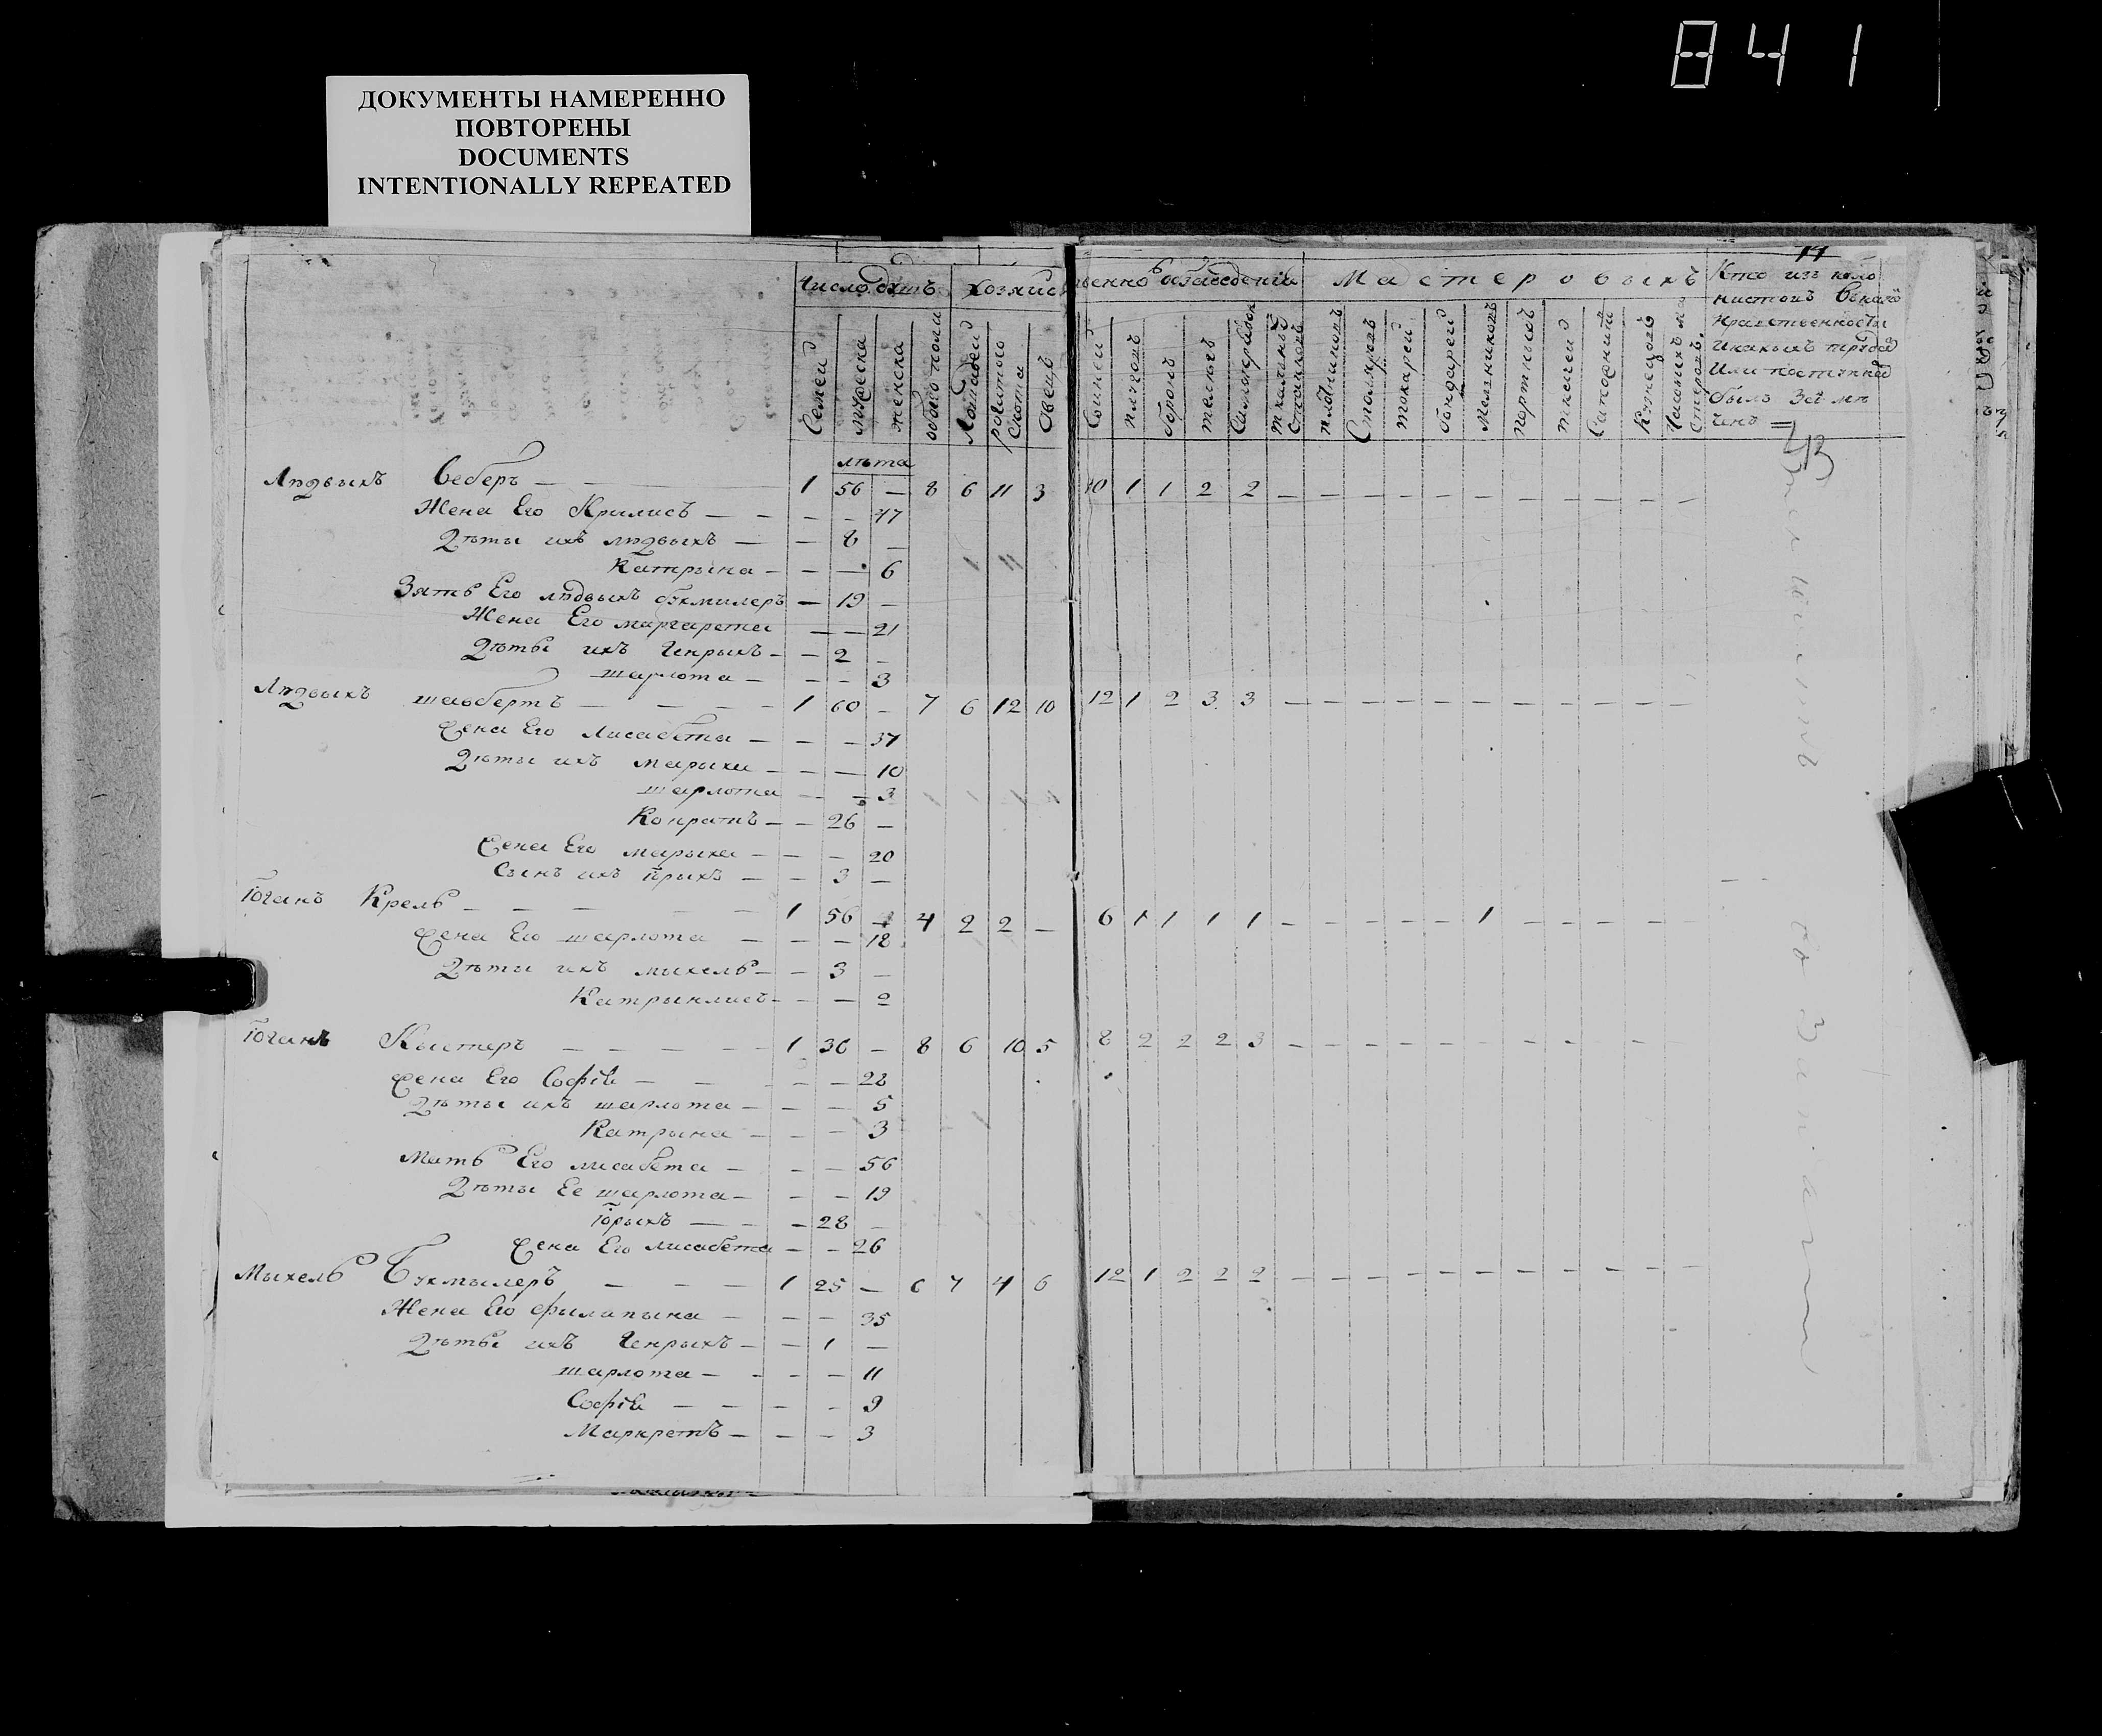 841
ДОКУМЕНТЫ НАМЕРЕННО
ПОВТОРЕНЫ
DOCUMENTS
INTENTIONALLY REPEATED
Число душъ
Мастеровыхъ
Кто изъ коло
нистовъ
нравственности
Семей
мужеска
женска
обоего пола
Лошадей
рогатого скота
Овецъ
Свиней
плуговъ
боронъ
телегъ
Самопрялок
плотниковъ
Столяровъ
токарей
бондарей
Мельниковъ
портныхъ
ткачей
Кузнецовъ
лѣта
Людвыхъ Веберъ — 1 56 — 8 6 11 3 10 1 1 2 2 — — — — — — — — — — —
Жена Его — — — 47
Дѣты ихъ людвыхъ — — 8 —
Катрына — — — 6
Зять Его людвыхъ букмилеръ — 19 —
Жена Его маргарета — — 21
Дѣты ихъ Генрыхъ — — 2 —
шарлота — — — 3
Людвыхъ — 1 60 — 7 6 12 10 12 1 2 3 3 — — — — — — — — — — —
жена Его Лисабета — — — 37
Дѣты ихъ Марыха — — — 10
шарлота — — 3
Конратъ — — 26 —
жена Его марыха — — — 20
Сынъ ихъ юрыхъ — — 3 —
Юганъ Крель — 1 56 — 4 2 2 — 6 1 1 1 1 — — — — — 1 — — — — —
жена Его шарлота — — — 18
Дѣты ихъ мыхель — — 3 —
Катрынлисъ — — — 2
Юганъ Кыстеръ — 1 30 — 8 6 10 5 8 2 2 2 3 — — — — — — — — —
жена Его Софiа — — — 28
Дѣты ихъ шарлота — — — 5
Катрына — — — 3
Мать Его лисабета — — — 56
Дѣты Ее шарлота — — — 19
юрыхъ — — 28 —
жена Его лисабета — — 26
Мыхель Букмылеръ — 1 25 — 6 7 4 6 12 1 2 2 2 — — — — — — — — — — —
Жена Его филипына — — — 35
Дѣты ихъ Генрыхъ — — 1 —
шарлота — — — 11
Софiа — — — 9
Маркретъ — — — 3